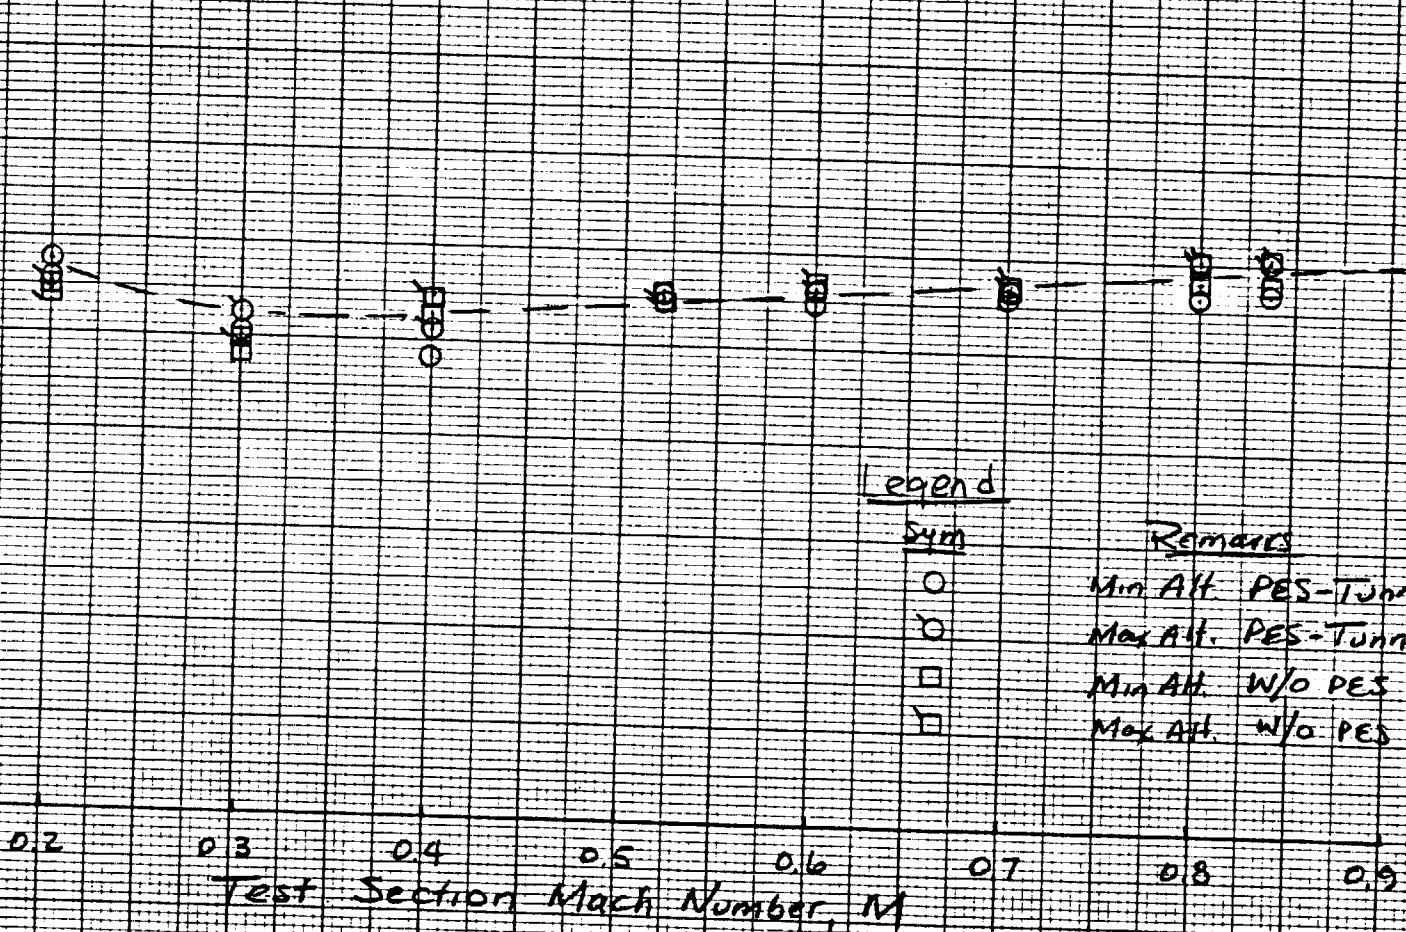 Legend
Sym Remarks
Min Alt. PES-Tunn
Max Alt. PES-Tunn
Min Alt. W/o PES
Max Alt. W/o PES
0.2 0.3 0.4 0.5 0.6 0.7 0.8 0.9
Test Section Mach Number, M